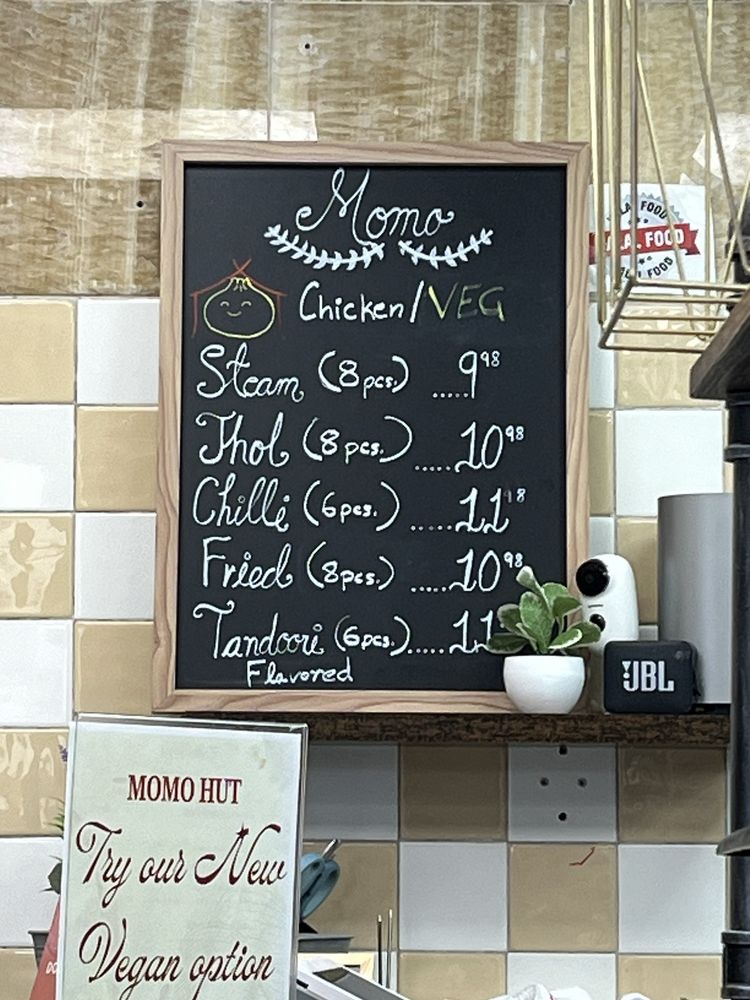 Momo
Chicken/VEG
Steam (8pcs.) .....9⁹⁸
Jhol (8pcs.) .....10⁹⁸
Chilli (6pcs.) .....11⁹⁸
Fried (8pcs.) .....10⁹⁸
Tandoori (6pcs.).....11
Flavored
FOOD
FOOD
FOOD
JBL
MOMO HUT
Try our New
Vegan option